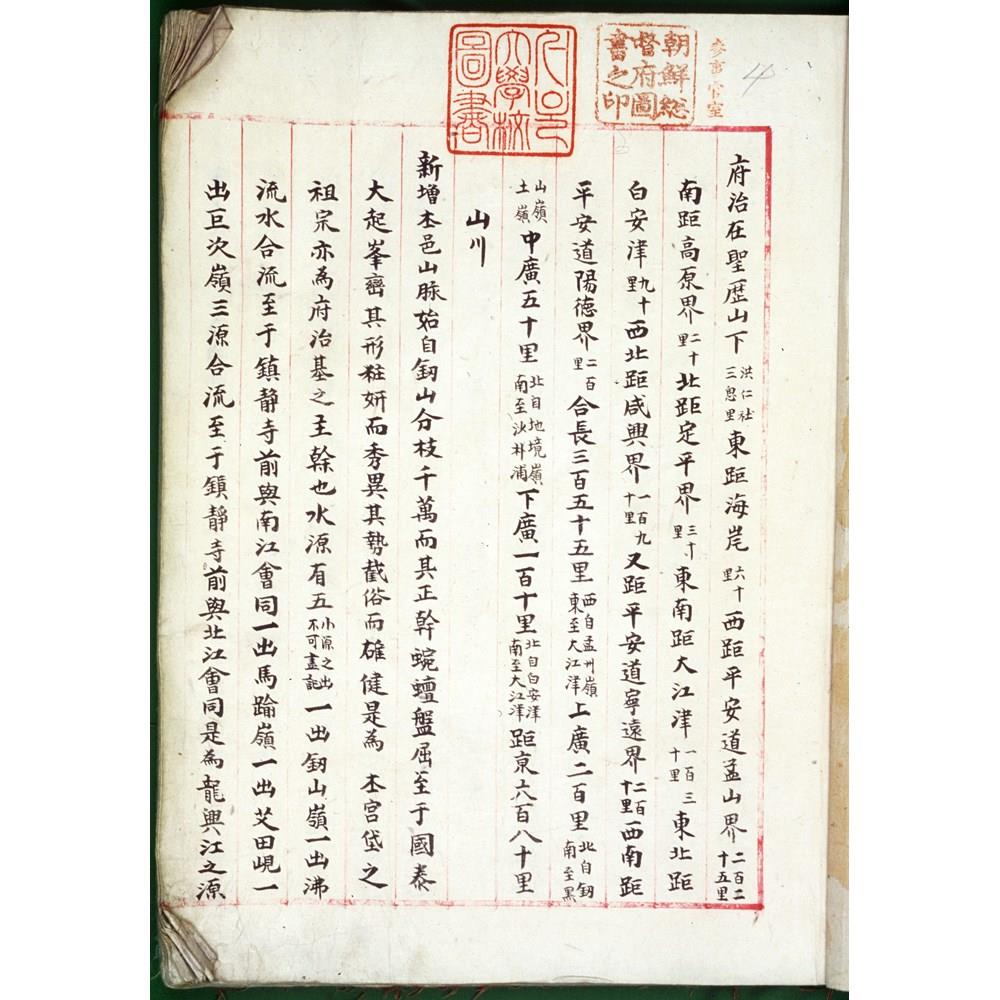 參事官室
朝鮮総
督府圖
書之印
大學校
圖書
府治在聖歷山下洪仁社三息里東距海岸六十里西距平安道孟山界二百二十五里
南距高原界二十里北距定平界三十里東南距大江津一百三十里東北距
白安津九十里西北距咸興界一百九十里又距平安道寧遠界二百十里西南距
平安道陽德界二百里合長三百五十五里西自孟州嶺東至大江津上廣二百里北自釰南至黑
山嶺土嶺中廣五十里北自地境嶺南至浦下廣一百十里北自白安津南至大江津距京六百八十里
山川
新增本邑山脉始自釰山分枝千萬而其正幹蜿蟺盤屈至于國泰
大起峯巒其形粧妍而秀異其勢截俗而雄健是為 本宮岱之
祖宗亦為府治基之主幹也水源有五小源之出不可盡記一出釰山嶺一出沸
流水合流至于鎮靜寺前與南江會同一出馬踰嶺一出艾田峴一
出巨次嶺三源合流至于鎮靜寺前與北江會同是為龍興江之源